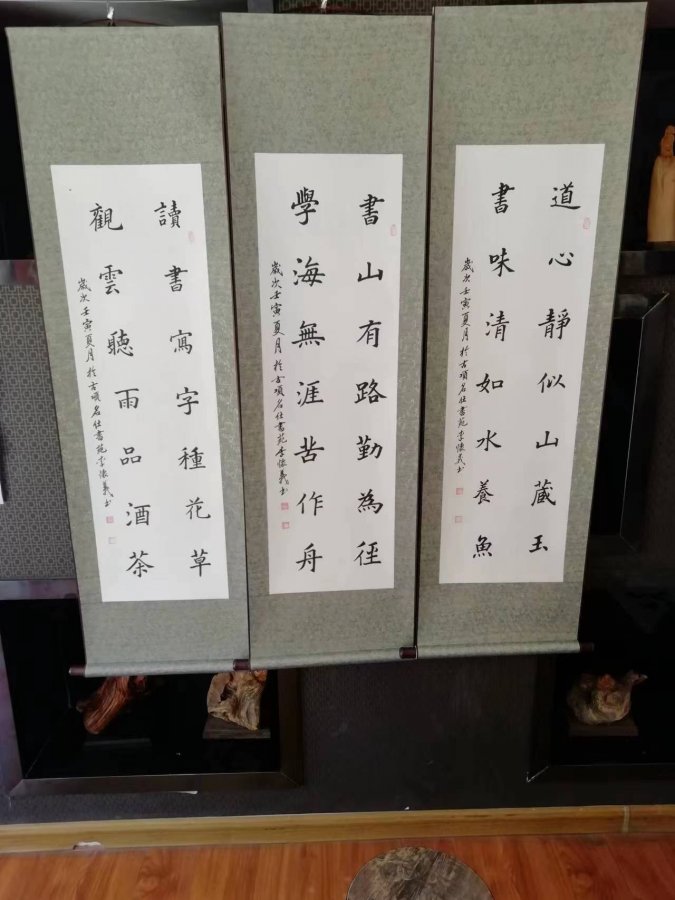 道心靜似山藏玉
書味清如水養魚
歲次壬寅夏月於古項名仕書苑李懷義書
書山有路勤為徑
學海無涯苦作舟
歲次壬寅夏月於古項名仕書苑李懷義書
讀書寫字種花草
觀雲聽雨品酒茶
歲次壬寅夏月於古項名仕書苑李懷義書